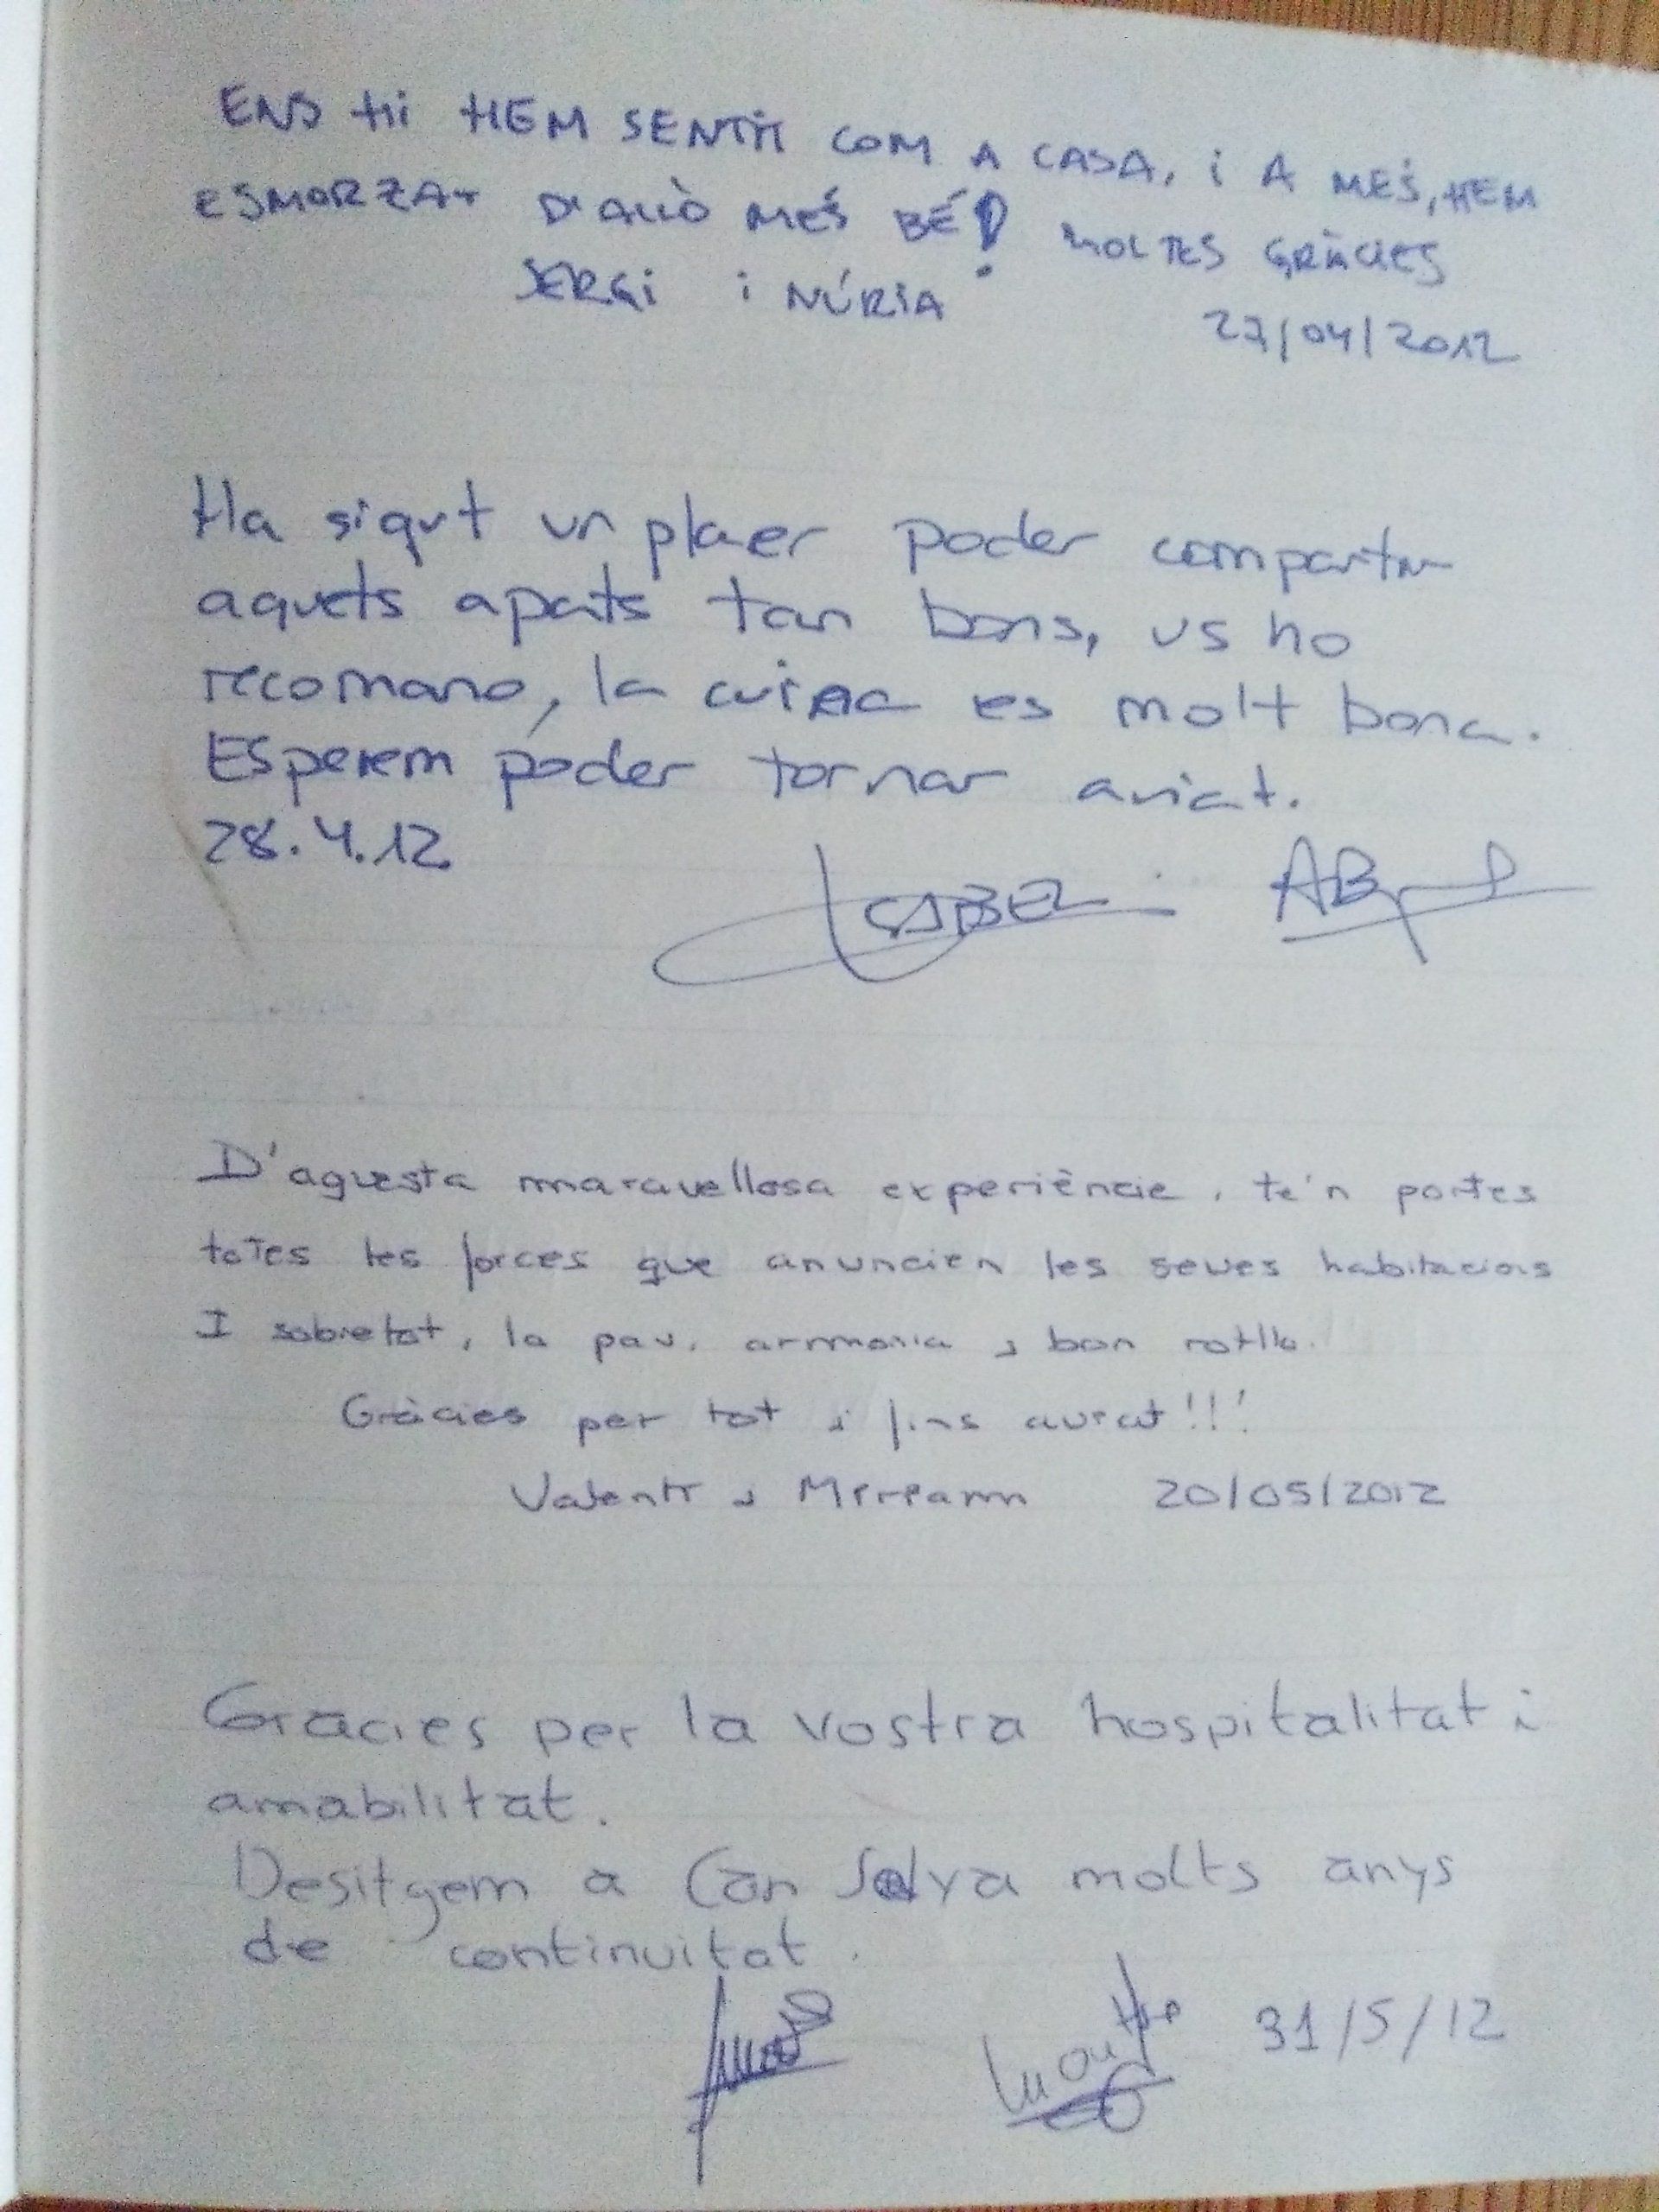 ENS HI HEM SENTIT COM A CASA, i A MÉS, HEM
ESMORZAT D'ALLÒ MÉS BÉ! MOLTES GRÀCIES
SERGI i NÚRIA
27/04/2012
Ha sigut un plaer poder compartir
aquets apats tan bons, us ho
recomano, la cuina es molt bona.
Esperem poder tornar aviat.
28.4.12
ISABEL
D'aquesta maravellosa experiència, te'n portes
totes les forces que anuncien les seves habitacions
I sobretot, la pau, armonia i bon rotllo.
Gràcies per tot i fins aviat!!!
Valentí i Miriam 20/05/2012
Gràcies per la vostra hospitalitat i
amabilitat.
Desitgem a Can Selva molts anys
de continuitat.
31/5/12